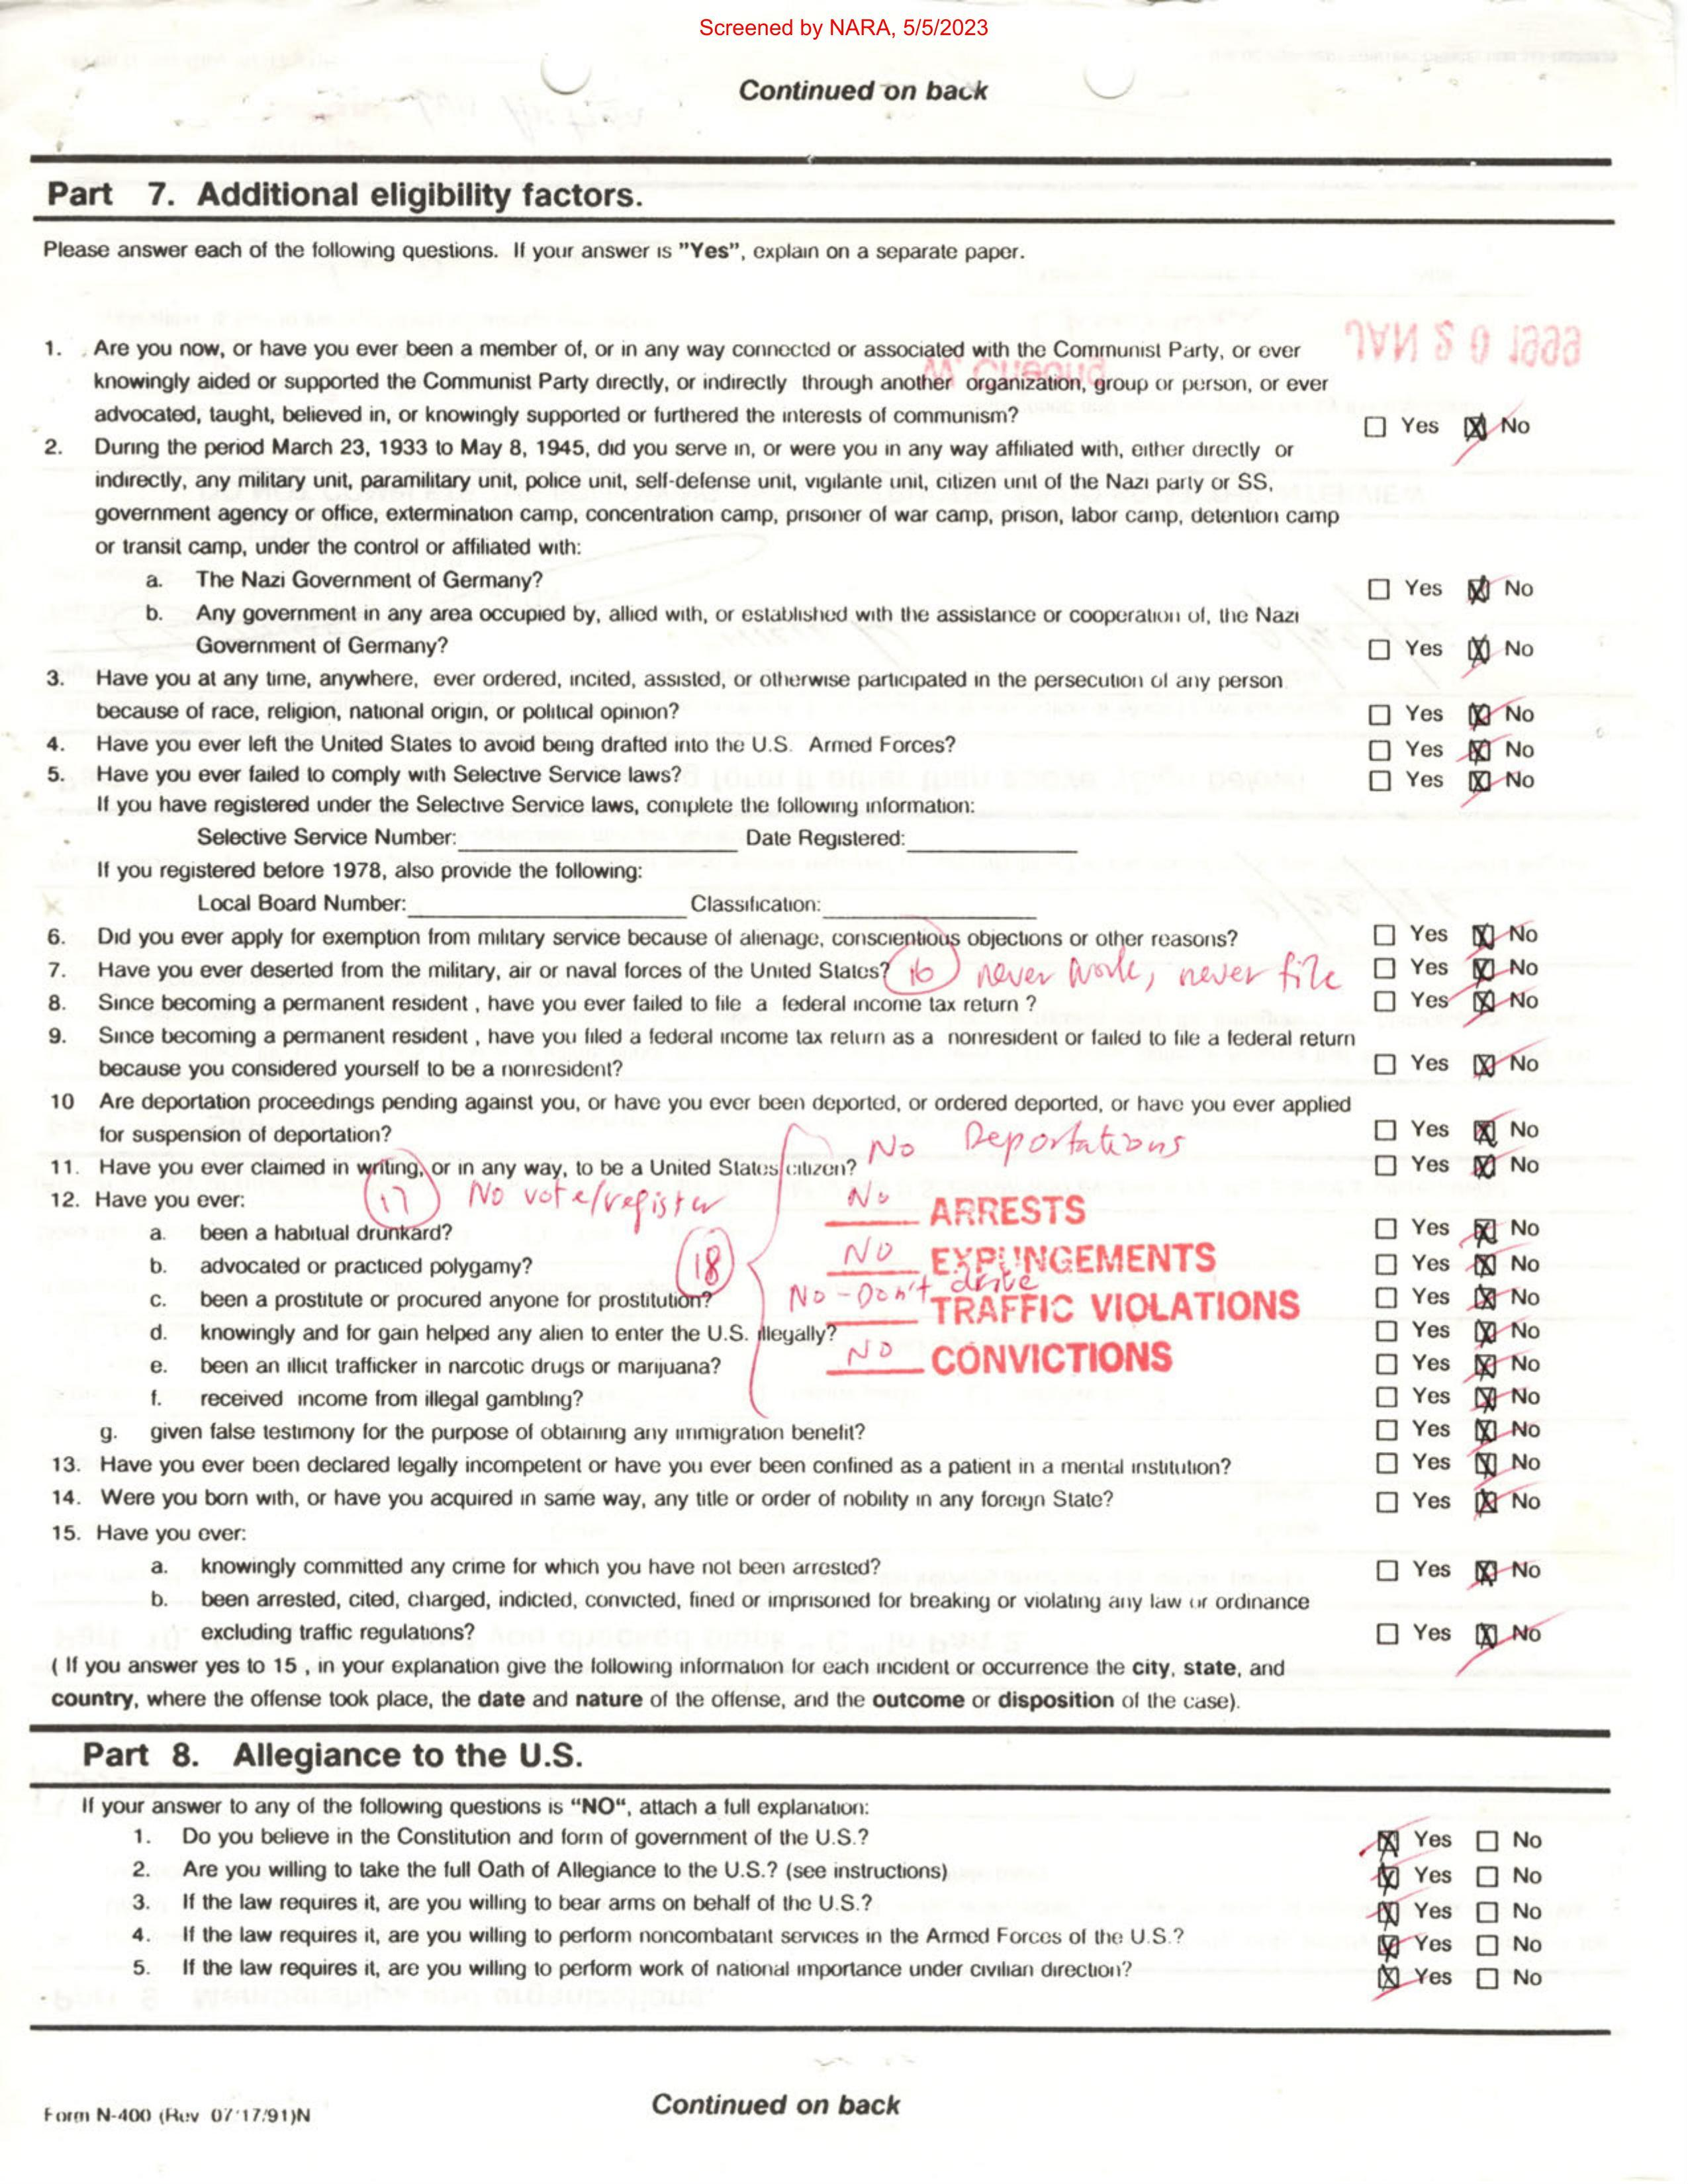 Screened by NARA, 5/5/2023
Continued on back
Part 7. Additional eligibility factors.
Please answer each of the following questions. If your answer is "Yes", explain on a separate paper.
1. Are you now, or have you ever been a member of, or in any way connected or associated with the Communist Party, or ever
knowingly aided or supported the Communist Party directly, or indirectly through another organization, group or person, or ever
advocated, taught, believed in, or knowingly supported or furthered the interests of communism? ☐ Yes ☒ No
2. During the period March 23, 1933 to May 8, 1945, did you serve in, or were you in any way affiliated with, either directly or
indirectly, any military unit, paramilitary unit, police unit, self-defense unit, vigilante unit, citizen unit of the Nazi party or SS,
government agency or office, extermination camp, concentration camp, prisoner of war camp, prison, labor camp, detention camp
or transit camp, under the control or affiliated with:
a. The Nazi Government of Germany? ☐ Yes ☒ No
b. Any government in any area occupied by, allied with, or established with the assistance or cooperation of, the Nazi
Government of Germany? ☐ Yes ☒ No
3. Have you at any time, anywhere, ever ordered, incited, assisted, or otherwise participated in the persecution of any person
because of race, religion, national origin, or political opinion? ☐ Yes ☒ No
4. Have you ever left the United States to avoid being drafted into the U.S. Armed Forces? ☐ Yes ☒ No
5. Have you ever failed to comply with Selective Service laws? ☐ Yes ☒ No
If you have registered under the Selective Service laws, complete the following information:
Selective Service Number: Date Registered:
If you registered before 1978, also provide the following:
Local Board Number: Classification:
6. Did you ever apply for exemption from military service because of alienage, conscientious objections or other reasons? ☐ Yes ☒ No
7. Have you ever deserted from the military, air or naval forces of the United States? 16 never work, never file ☐ Yes ☒ No
8. Since becoming a permanent resident , have you ever failed to file a federal income tax return ? ☐ Yes ☒ No
9. Since becoming a permanent resident , have you filed a federal income tax return as a nonresident or failed to file a federal return
because you considered yourself to be a nonresident? ☐ Yes ☒ No
10 Are deportation proceedings pending against you, or have you ever been deported, or ordered deported, or have you ever applied
for suspension of deportation? ☐ Yes ☒ No
No Deportations
11. Have you ever claimed in writing, or in any way, to be a United States citizen? ☐ Yes ☒ No
12. Have you ever:
17 No vote/register
No ARRESTS
a. been a habitual drunkard? ☐ Yes ☒ No
18 NO EXPUNGEMENTS
b. advocated or practiced polygamy? ☐ Yes ☒ No
c. been a prostitute or procured anyone for prostitution? ☐ Yes ☒ No
No - Don't drive TRAFFIC VIOLATIONS
d. knowingly and for gain helped any alien to enter the U.S. illegally? ☐ Yes ☒ No
NO CONVICTIONS
e. been an illicit trafficker in narcotic drugs or marijuana? ☐ Yes ☒ No
f. received income from illegal gambling? ☐ Yes ☒ No
g. given false testimony for the purpose of obtaining any immigration benefit? ☐ Yes ☒ No
13. Have you ever been declared legally incompetent or have you ever been confined as a patient in a mental institution? ☐ Yes ☒ No
14. Were you born with, or have you acquired in same way, any title or order of nobility in any foreign State? ☐ Yes ☒ No
15. Have you ever:
a. knowingly committed any crime for which you have not been arrested? ☐ Yes ☒ No
b. been arrested, cited, charged, indicted, convicted, fined or imprisoned for breaking or violating any law or ordinance
excluding traffic regulations? ☐ Yes ☒ No
( If you answer yes to 15 , in your explanation give the following information for each incident or occurrence the city, state, and
country, where the offense took place, the date and nature of the offense, and the outcome or disposition of the case).
Part 8. Allegiance to the U.S.
If your answer to any of the following questions is "NO", attach a full explanation:
1. Do you believe in the Constitution and form of government of the U.S.? ☒ Yes ☐ No
2. Are you willing to take the full Oath of Allegiance to the U.S.? (see instructions) ☒ Yes ☐ No
3. If the law requires it, are you willing to bear arms on behalf of the U.S.? ☒ Yes ☐ No
4. If the law requires it, are you willing to perform noncombatant services in the Armed Forces of the U.S.? ☒ Yes ☐ No
5. If the law requires it, are you willing to perform work of national importance under civilian direction? ☒ Yes ☐ No
Form N-400 (Rev 07/17/91)N
Continued on back